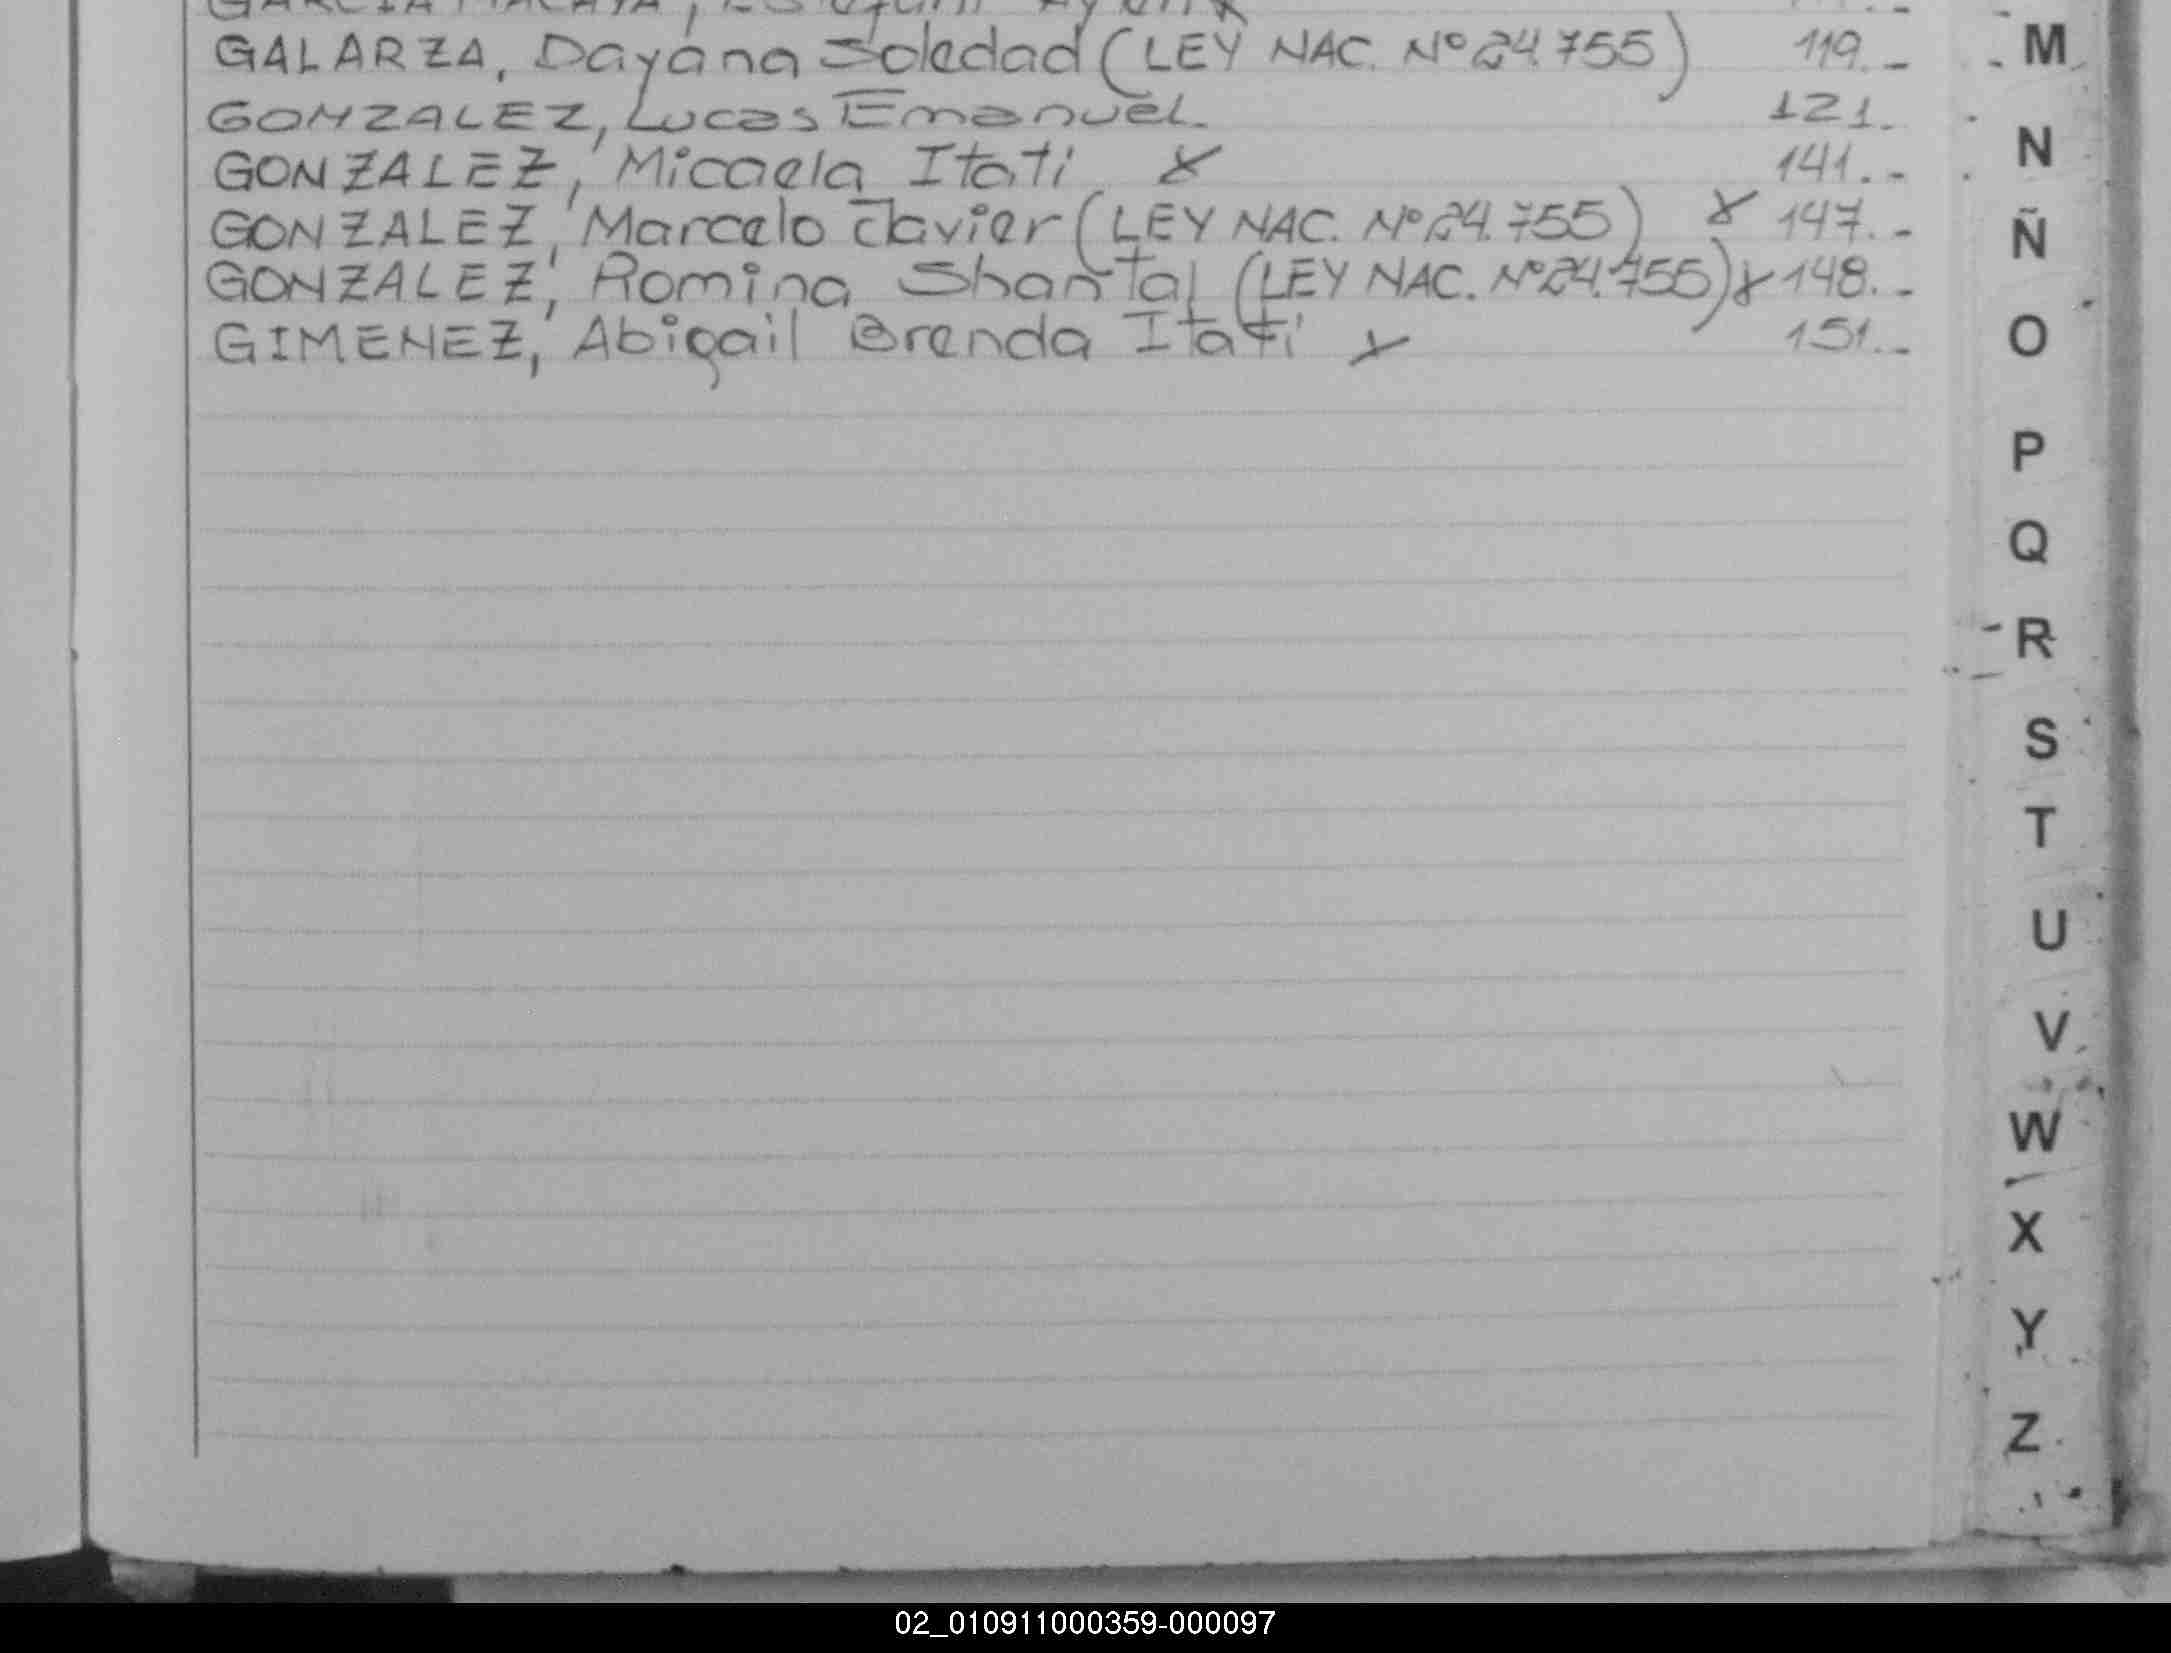 GALARZA, Dayana Soledad (LEY NAC. Nº 24.755) 119.-
GONZALEZ, Lucas Emanuel. 121.
GONZALEZ, Micaela Itati x 141.-
GONZALEZ, Marcelo Javier (LEY NAC. Nº 24.755) x 147.-
GONZALEZ, Romina Shantal (LEY NAC. Nº 24.755) x 148.-
GIMENEZ, Abigail Brenda Itatí x 151.-
M
N
Ñ
O
P
Q
R
S
T
U
V
W
X
Y
Z
02_010911000359-000097